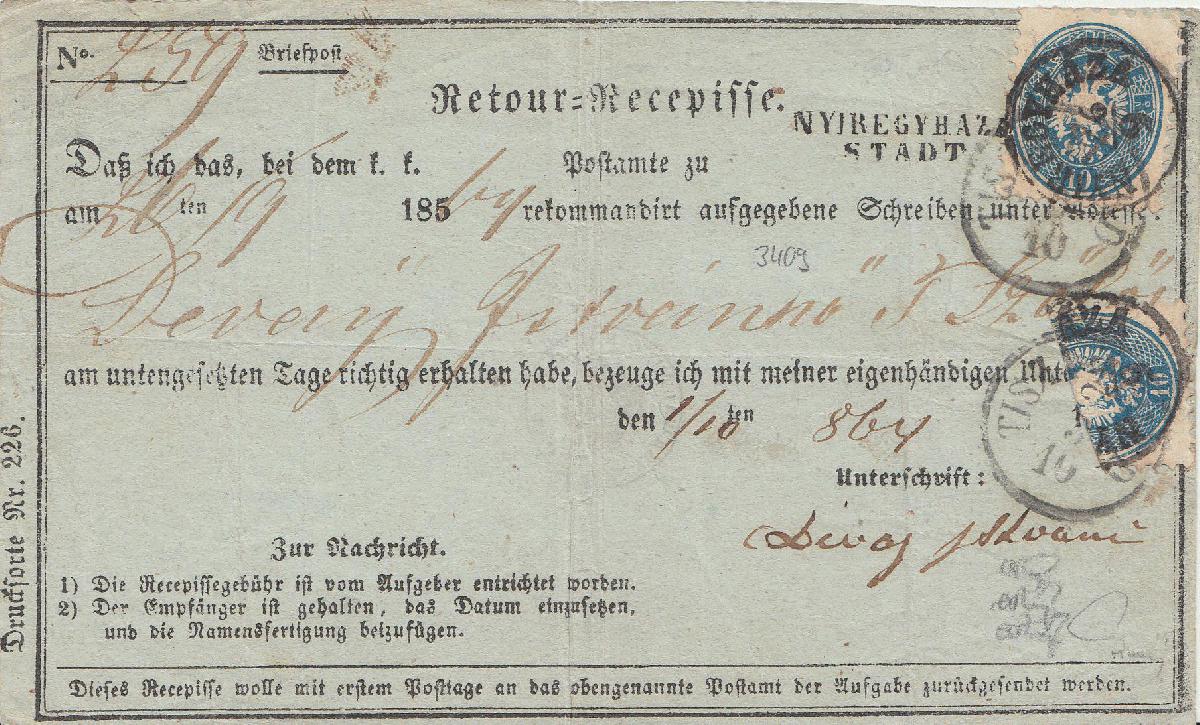 No. 259 Briefpost
Retour=Recepisse.
NYIREGYHAZA
STADT
Daß ich das, bei dem k. k. Postamte zu
am ten 19 185 64 rekommandirt aufgegebene Schreiben unter Adresse.
3409
am untengesetzten Tage richtig erhalten habe, bezeuge ich mit meiner eigenhändigen
den 1/10 ten 864
Unterschrift:
Zur Nachricht.
1) Die Recepissegebühr ist vom Aufgeber entrichtet worden.
2) Der Empfänger ist gehalten, das Datum einzusetzen,
und die Namensfertigung beizufügen.
Dieses Recepisse wolle mit erstem Posttage an das obengenannte Postamt der Aufgabe zurückgesendet werden.
Drucksorte Nr. 226.
10
10